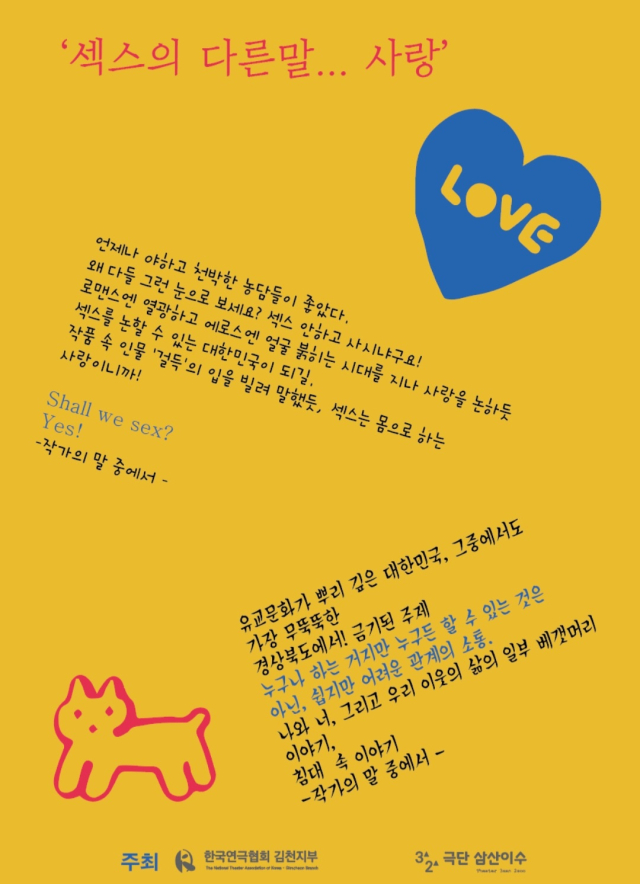 ‘섹스의 다른말... 사랑’
LOVE
언제나 야하고 천박한 농담들이 좋았다.
왜 다들 그런 눈으로 보세요? 섹스 안하고 사시냐구요!
로맨스엔 열광하고 에로스엔 얼굴 붉히는 시대를 지나 사랑을 논하듯
섹스를 논할 수 있는 대한민국이 되길.
작품 속 인물 '걸득'의 입을 빌려 말했듯, 섹스는 몸으로 하는
사랑이니까!
Shall we sex?
Yes!
-작가의 말 중에서 -
유교문화가 뿌리 깊은 대한민국, 그중에서도
가장 무뚝뚝한
경상북도에서! 금기된 주제
누구나 하는 거지만 누구든 할 수 있는 것은
아닌, 쉽지만 어려운 관계의 소통.
나와 너, 그리고 우리 이웃의 삶의 일부 베갯머리
이야기,
침대 속 이야기
-작가의 말 중에서 -
주최 한국연극협회 김천지부
The National Theater Association of Korea - Gimcheon Branch
3▲2▲ 극단 삼산이수
Theater